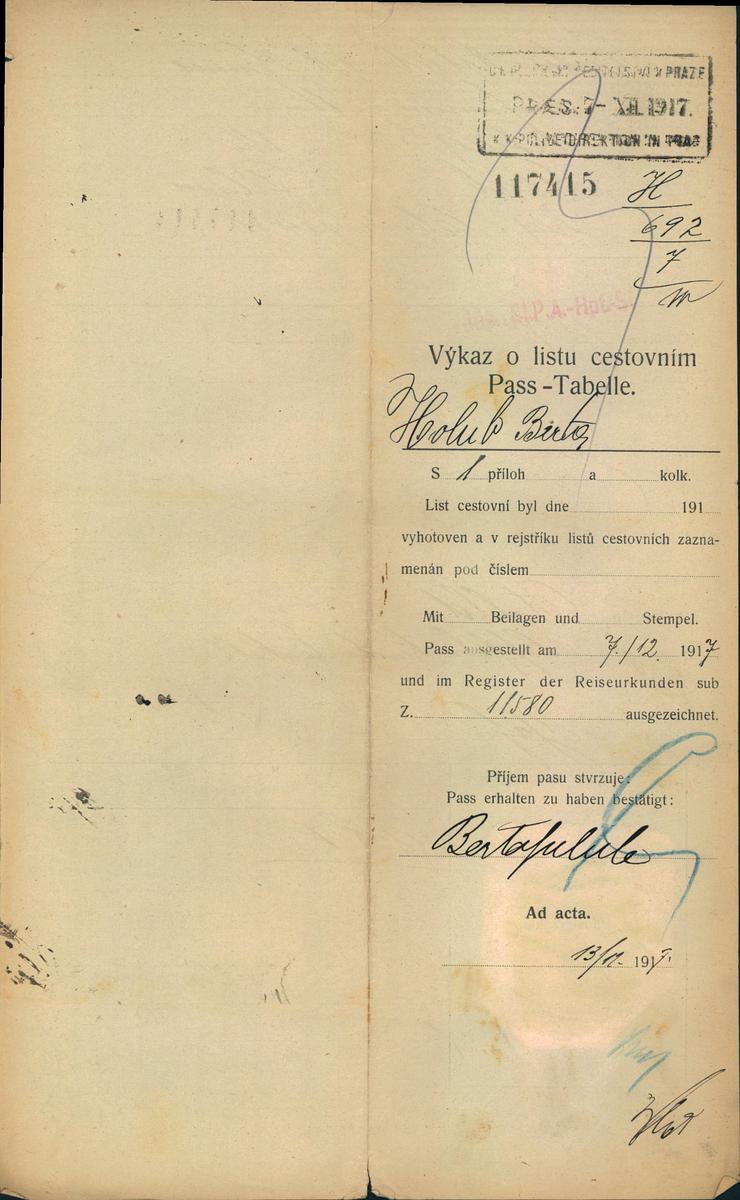 PRES. 7- XII. 1917.
K. K. POLIZEIDIREKTION IN PRAG
117415
H
692
7
Výkaz o listu cestovním
Pass-Tabelle.
Holub Berta
S 1 příloh a kolk.
List cestovní byl dne 191
vyhotoven a v rejstříku listů cestovních zazna-
menán pod číslem
Mit Beilagen und Stempel.
Pass ausgestellt am 7./12. 1917
und im Register der Reiseurkunden sub
Z. 11580 ausgezeichnet.
Příjem pasu stvrzuje:
Pass erhalten zu haben bestätigt:
Berta
Ad acta.
1917.